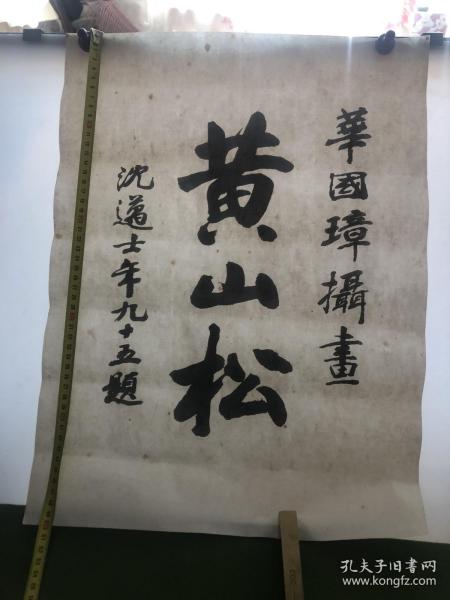 華國璋攝畫
黄山松
沈邁士年九十五題
孔夫子旧书网
www.kongfz.com